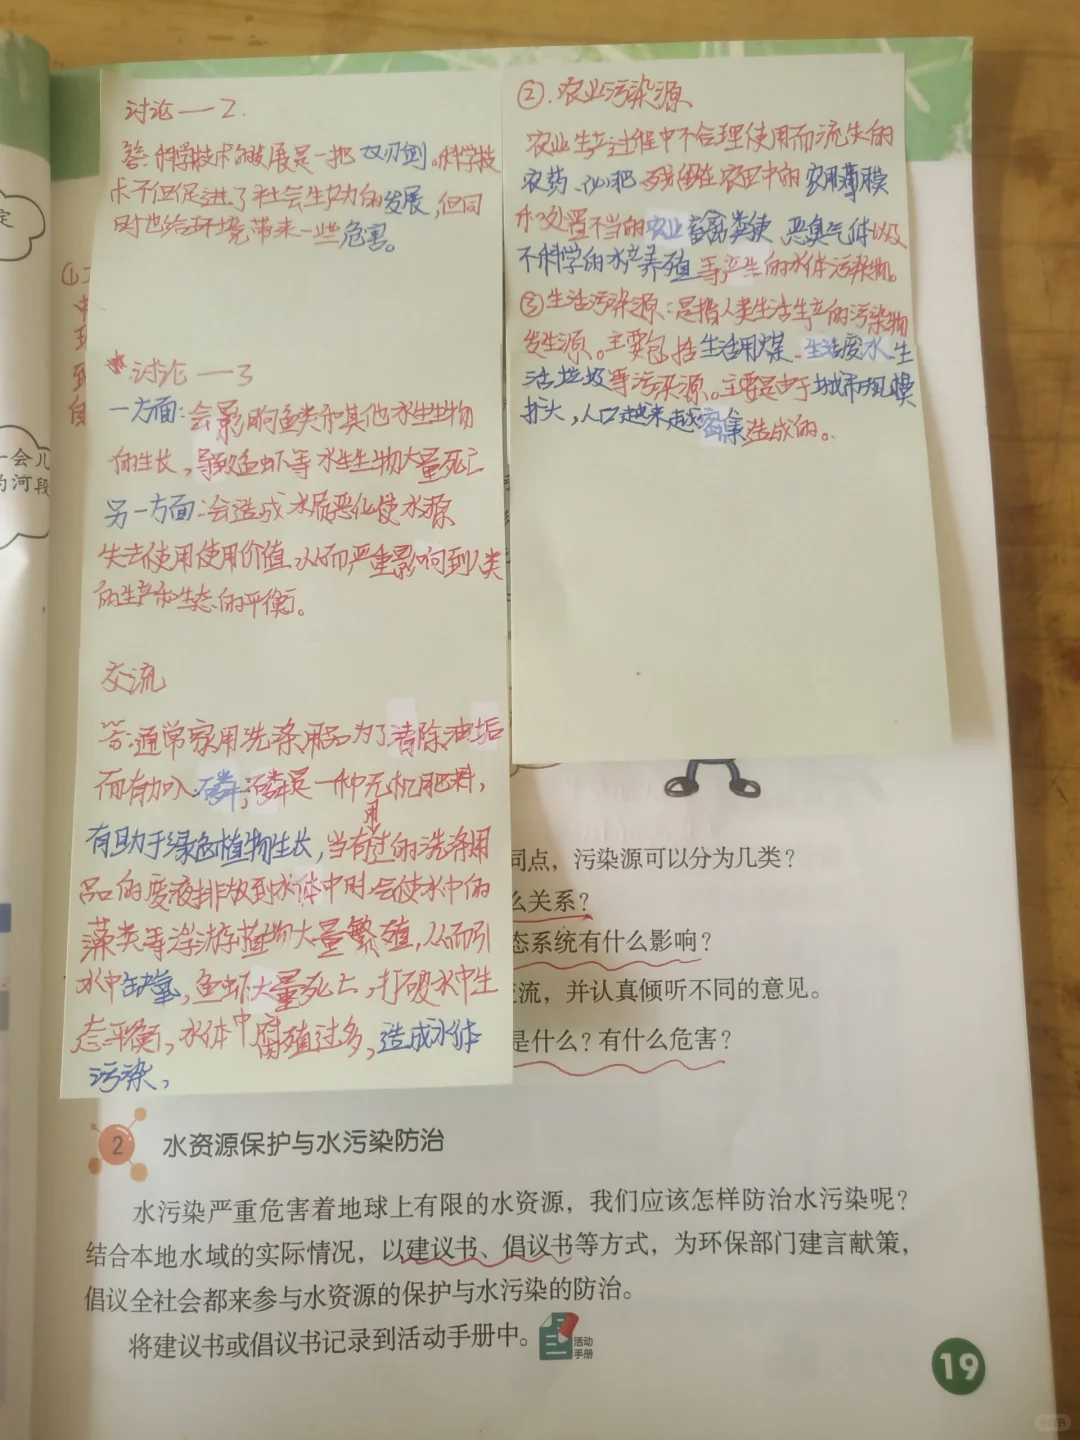 讨论一2.
答:科学技术的发展是一把双刃剑.科学技
术不但促进了社会生产力的发展,但同
时也给环境带来一些危害。
讨论一3
一方面:会影响鱼类和其他水生生物
的生长,导致鱼虾等水生生物大量死亡
另一方面:会造成水质恶化使水源
失去使用使用价值.从而严重影响到人类
的生产和生态的平衡。
交流
答:通常家用洗涤用品为了清除油垢
而有加入磷;磷是一种无机肥料,
有助于绿色植物生长,当有用过的洗涤用
品的废液排放到水体中时.会使水中的
藻类等浮游植物大量繁殖,从而引
水中缺氧,鱼虾大量死亡,打破水中生
态平衡,水体中腐殖过多,造成水体
污染,
②.农业污染源
农业生产过程中不合理使用而流失的
农药、化肥 残留在农田中的农用薄膜
和处置不当的农业畜禽粪便 恶臭气体以及
不科学的水产养殖等产生的水体污染物。
③生活污染源:是指人类生活生产的污染物
发生源。主要包括生活用煤、生活废水生
活垃圾等污染源。主要是由于城市规模
扩大,人口越来越密集造成的。
定
一会儿
的河段
同点，污染源可以分为几类？
么关系？
态系统有什么影响？
交流，并认真倾听不同的意见。
是什么？有什么危害？
2 水资源保护与水污染防治
水污染严重危害着地球上有限的水资源，我们应该怎样防治水污染呢？
结合本地水域的实际情况，以建议书、倡议书等方式，为环保部门建言献策，
倡议全社会都来参与水资源的保护与水污染的防治。
将建议书或倡议书记录到活动手册中。
活动
手册
19